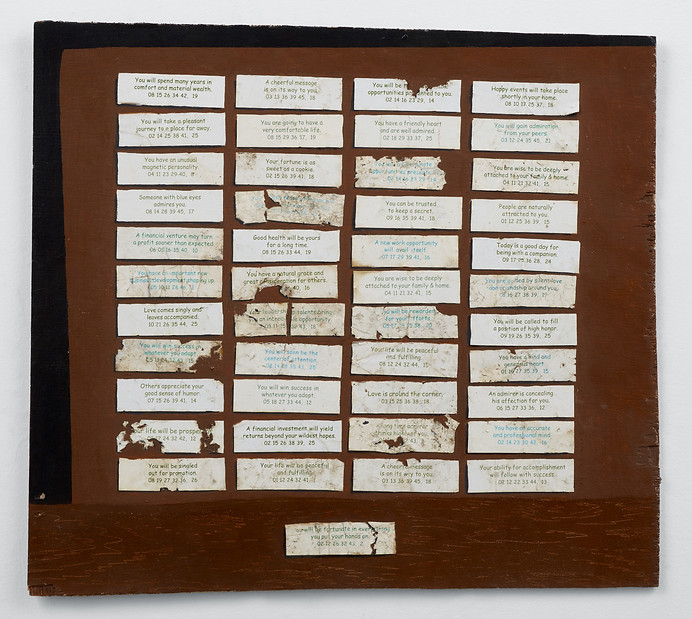 You will spend many years in
comfort and material wealth.
08 15 26 34 42, 19
A cheerful message
is on its way to you.
03 13 36 39 45, 18
You will be
opportunities presented to you.
02 14 16 23 29, 14
Happy events will take place
shortly in your home.
08 10 17 25 37, 16
You will take a pleasant
journey to a place far away.
02 14 25 38 41, 25
You are going to have a
very comfortable life.
08 15 29 36 37, 19
You have a friendly heart
and are well admired.
02 18 29 31 37, 25
You will gain admiration
from your peers.
03 12 24 35 45, 21
You have an unusual
magnetic personality.
04 11 23 29 40,
Your fortune is as
sweet as a cookie.
02 15 26 39 41, 18
opportunities
You are wise to be deeply
attached to your family & home.
04 11 21 32 41, 15
Someone with blue eyes
admires you.
08 14 28 39 45, 17
You can be trusted
to keep a secret.
09 16 35 39 41, 18
People are naturally
attracted to you.
01 12 25 36 39, 15
A financial venture may turn
a profit sooner than expected.
06 02 16 35 40, 10
Good health will be yours
for a long time.
08 15 26 33 44, 19
A new work opportunity
will avail itself.
07 17 29 38 41, 16
Today is a good day for
being with a companion.
09 17 25 36 28, 24
You have an important new
business development shaping up.
You have a natural grace and
great consideration for others.
40, 16
You are wise to be deeply
attached to your family & home.
04 11 21 32 41, 15
You are guided by silent love
and friendship around you.
16 27 38 39, 21
Love comes singly and
leaves accompanied.
10 21 26 35 44, 25
Your leadership talents bring
an interesting opportunity
43, 16
You will be rewarded
for your efforts.
You will be called to fill
a position of high honor.
09 19 26 35 39, 25
You will win success in
whatever you adopt.
05 18 27 33 44, 12
You will soon be the
center of attention.
02 14 29 36 43, 25
Your life will be peaceful
and fulfilling.
08 12 24 32 44, 15
You have a kind and
generous heart.
01 19 27 35 39, 15
Others appreciate your
good sense of humor.
07 15 26 39 41, 14
You will win success in
whatever you adopt.
05 18 27 33 44, 12
Love is around the corner.
03 15 25 36 38, 18
An admirer is concealing
his affection for you.
06 15 27 33 36, 12
Your life will be prosperous
24 32 42, 12
A financial investment will yield
returns beyond your wildest hopes.
02 15 26 38 39, 25
A long time admirer
thinks highly of you.
You have an accurate
and professional mind.
02 14 23 30 43, 16
You will be singled
out for promotion.
08 19 27 32 36, 26
Your life will be peaceful
and fulfilling.
01 12 24 32 41
A cheery message
is on its way to you.
03 13 36 39 45, 18
Your ability for accomplishment
will follow with success.
02 12 22 33 44, 13
will be fortunate in everything
you put your hands on.
02 12 26 32 41, 2